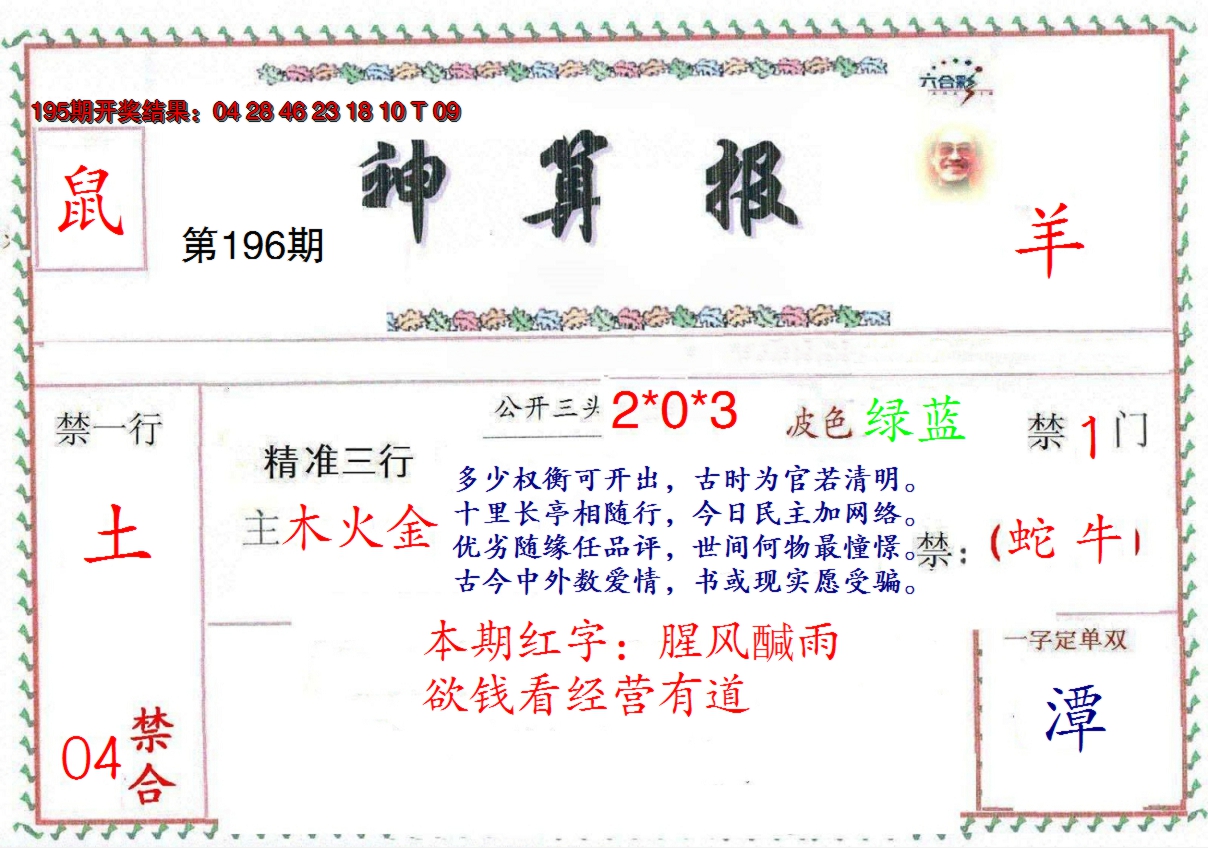 六合彩
195期开奖结果：04 28 46 23 18 10 T 09
神算报
鼠
第196期
羊
公开三头 2*0*3
波色 绿蓝
禁一行
土
04 禁合
精准三行
主木火金
多少权衡可开出，古时为官若清明。
十里长亭相随行，今日民主加网络。
优劣随缘任品评，世间何物最憧憬。
古今中外数爱情，书或现实愿受骗。
禁1门
禁：(蛇 牛)
本期红字：腥风醎雨
欲钱看经营有道
一字定单双
潭